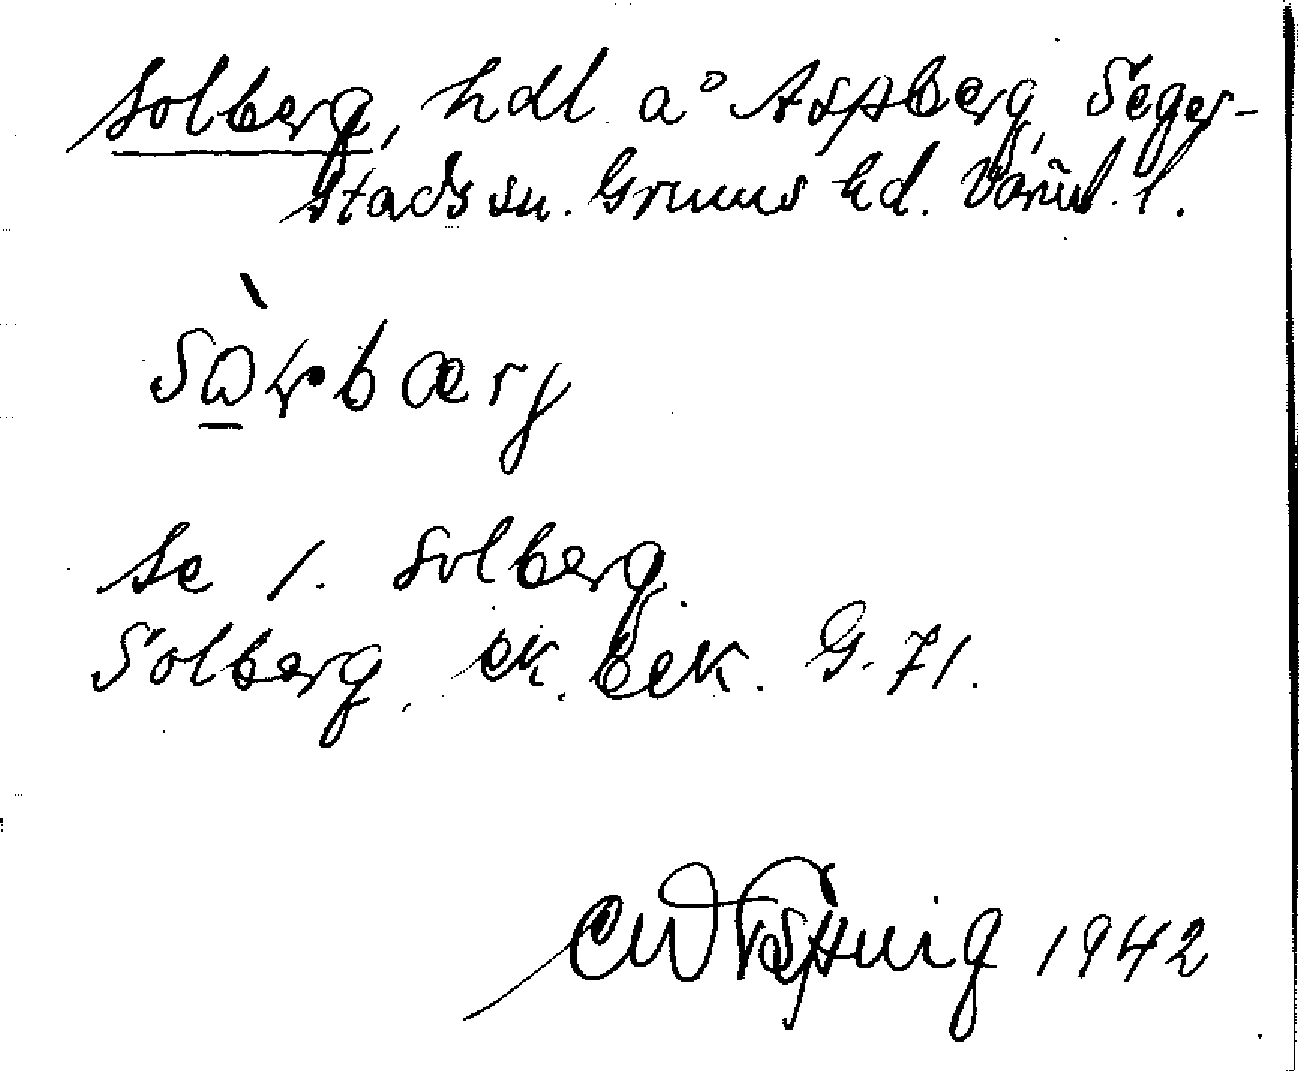 Solberg, hdl å Aspberg, Seger-
stads sn. Grums hd. Värml. l.
Se 1. Solberg
Solberg. ek. bek. G. 71.
1942